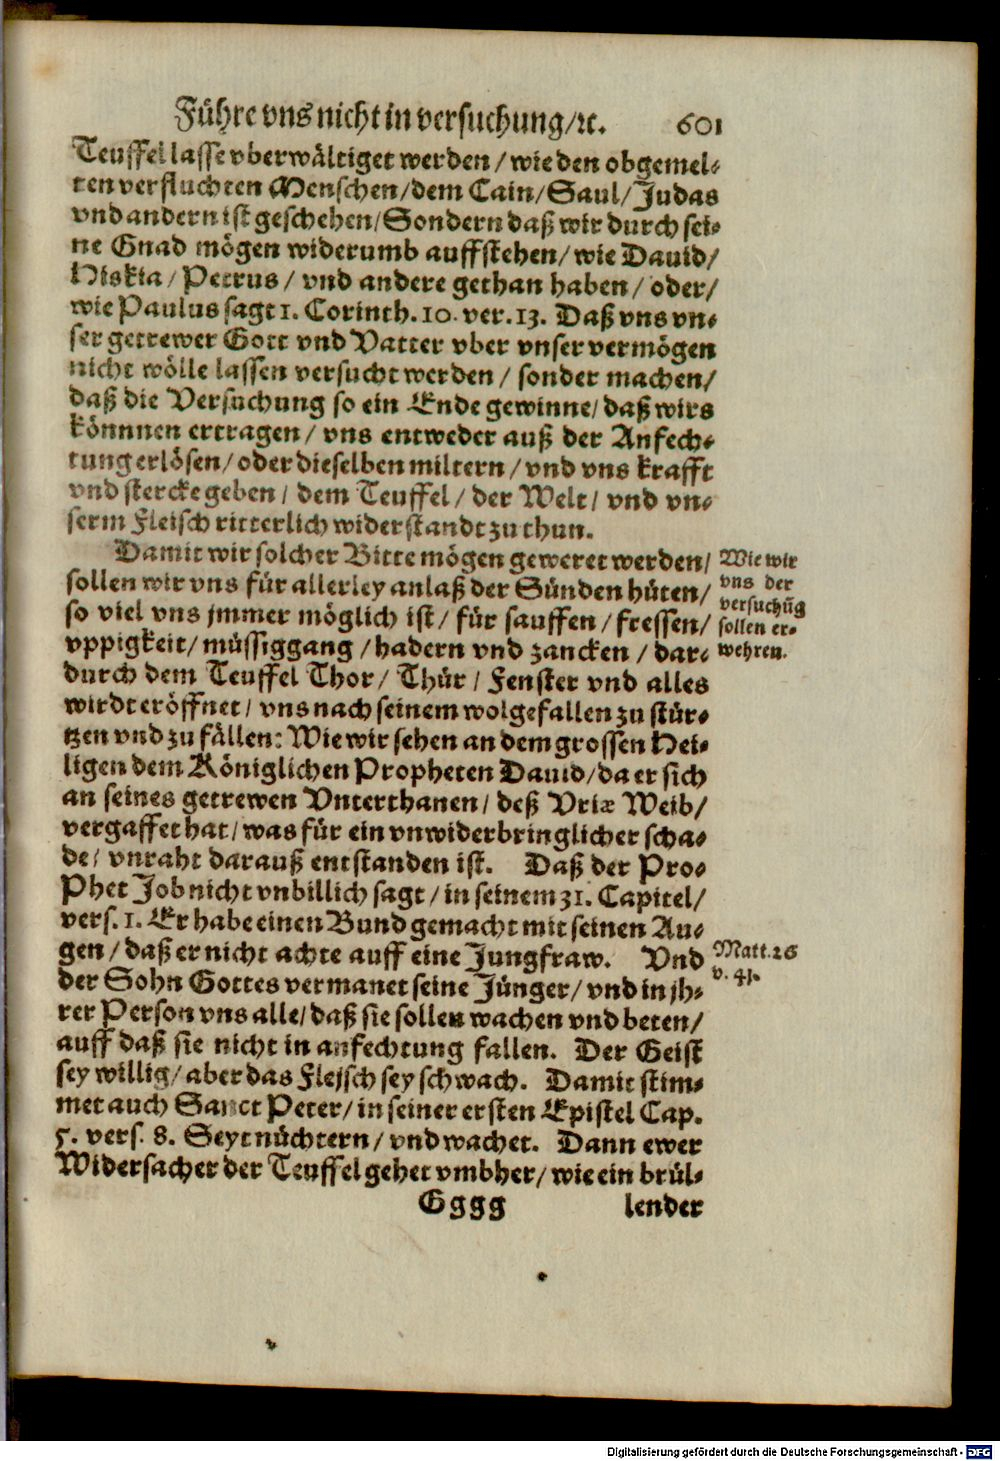 Führe vns nicht in versuchung/ꝛc. 601
Teuffel lasse vberwältiget werden/wie den obgemel-
ten verfluchten Menschen/dem Cain/Saul/Judas
vnd andern ist geschehen/Sondern daß wir durch sei-
ne Gnad mögen widerumb auffstehen/wie Dauid/
Hiskia/Petrus/vnd andere gethan haben/oder/
wie Paulus sagt 1. Corinth. 10. ver. 13. Daß vns vn-
ser getrewer Gott vnd Vatter vber vnser vermögen
nicht wölle lassen versucht werden/sonder machen/
daß die Versuchung so ein Ende gewinne/daß wirs
könnnen ertragen/vns entweder auß der Anfech-
tung erlösen/oder dieselben miltern/vnd vns krafft
vnd stercke geben/dem Teuffel/der Welt/vnd vn-
serm Fleisch ritterlich widerstandt zu thun.
Damit wir solcher Bitte mögen geweret werden/
sollen wir vns für allerley anlaß der Sünden hüten/
so viel vns jmmer möglich ist/für sauffen/fressen/
vppigkeit/müssiggang/hadern vnd zancken/dar-
durch dem Teuffel Thor/Thür/Fenster vnd alles
wirdt eröffnet/vns nach seinem wolgefallen zu stür-
tzen vnd zu fällen: Wie wir sehen an dem grossen Hei-
ligen dem Königlichen Propheten Dauid/da er sich
an seines getrewen Vnterthanen/deß Vriæ Weib/
vergaffet hat/was für ein vnwiderbringlicher scha-
de/vnraht darauß entstanden ist. Daß der Pro-
Phet Job nicht vnbillich sagt/in seinem 31. Capitel/
vers. 1. Er habe einen Bund gemacht mit seinen Au-
gen/daß er nicht achte auff eine Jungfraw. Vnd
der Sohn Gottes vermanet seine Jünger/vnd in jh-
rer Person vns alle/daß sie sollen wachen vnd beten/
auff daß sie nicht in anfechtung fallen. Der Geist
sey willig/aber das Fleisch sey schwach. Damit stim-
met auch Sanct Peter/in seiner ersten Epistel Cap.
5. vers. 8. Seyt nüchtern/vnd wachet. Dann ewer
Widersacher der Teuffel gehet vmbher/wie ein brül-
Gggg lender
Wie wir
vns der
versuchūg
sollen er-
wehren.
Matt. 26
v. 41.
Digitalisierung gefördert durch die Deutsche Forschungsgemeinschaft - DFG